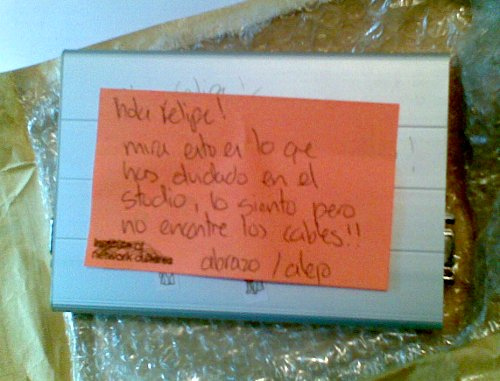 hola Felipe!
mira esto es lo que
has dudado en el
studio, lo siento pero
no encontre los cables!!
institute of
network cultures
abrazo / alejo